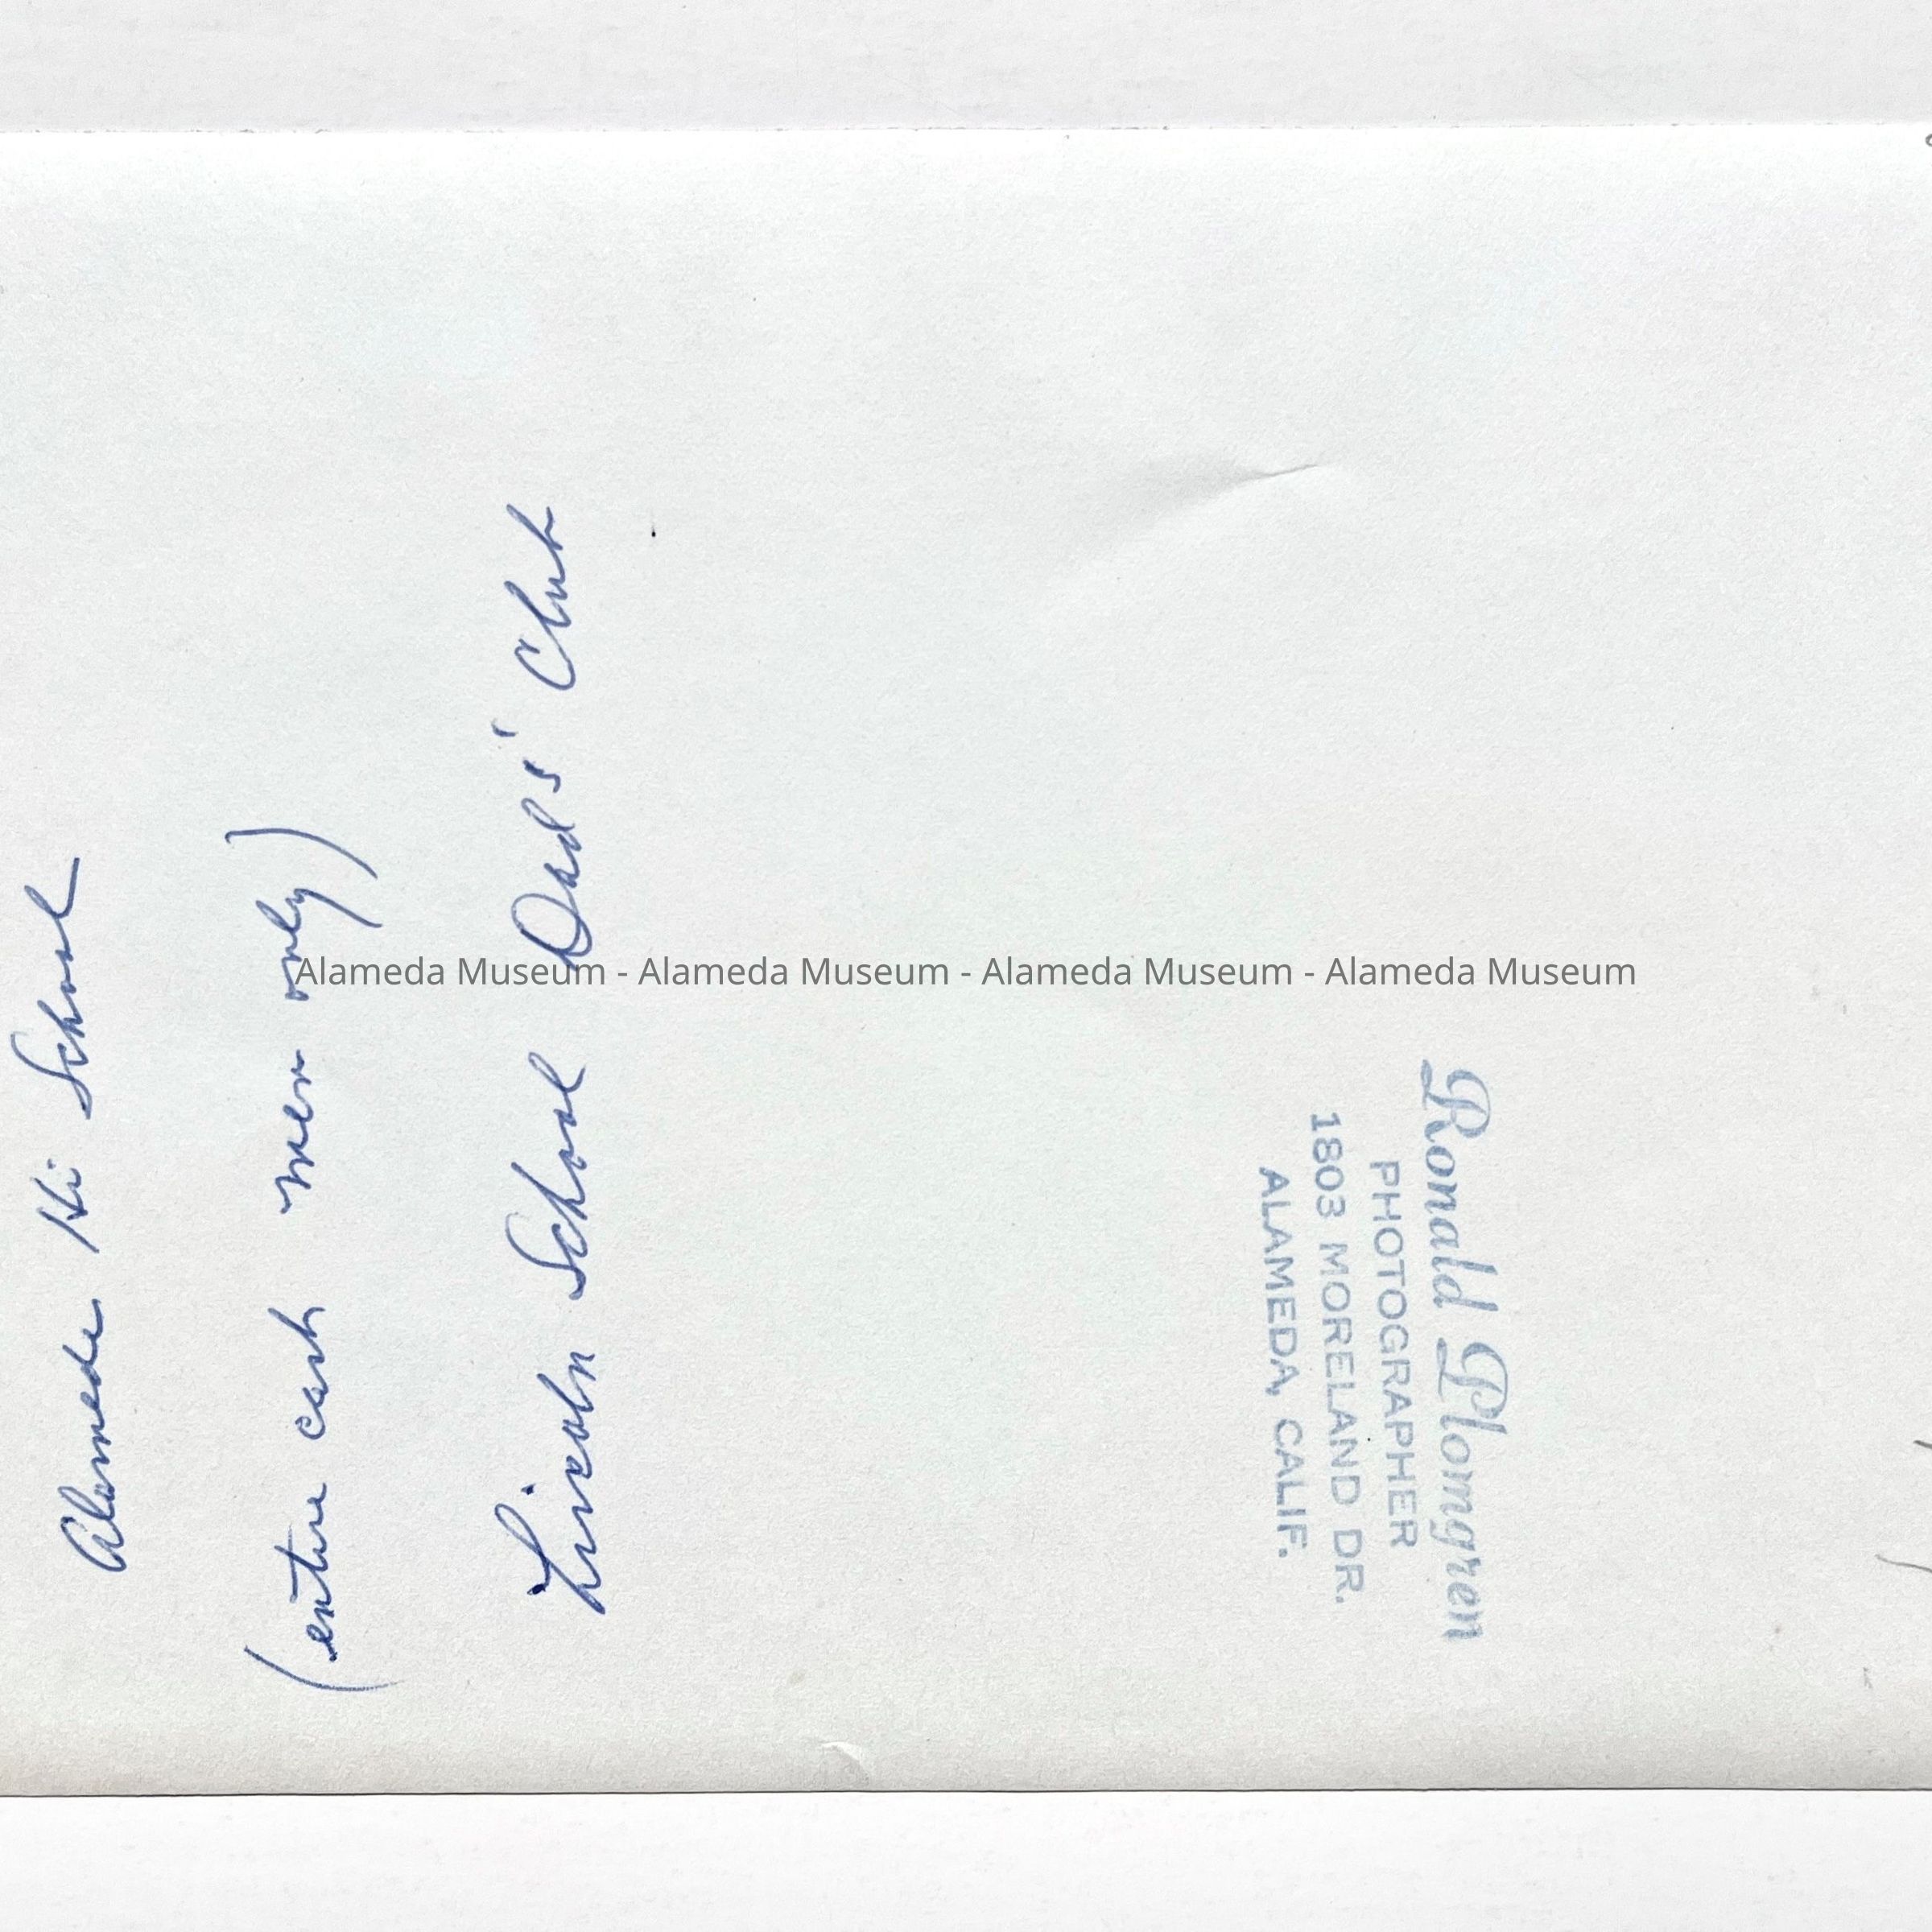 Alameda Hi School
(entire cast men only)
Lincoln School Dads' Club
Ronald Plomgren
PHOTOGRAPHER
1803 MORELAND DR.
ALAMEDA, CALIF.
Alameda Museum - Alameda Museum - Alameda Museum - Alameda Museum